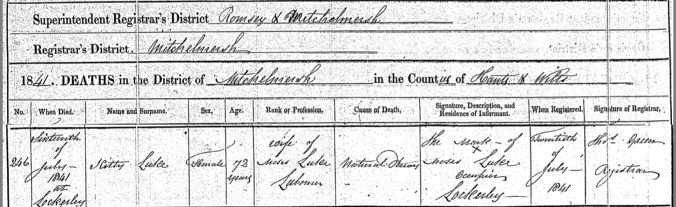 Superintendent Registrar's District Romsey & Mitchelmersh
Registrar's District. Mitchelmersh
1841. DEATHS in the District of Mitchelmersh in the Counties of Hants & Wilts
No. When Died. Name and Surname. Sex, Age. Rank or Profession. Cause of Death, Signature, Description, and Residence of Informant. When Registered. Signature of Registrar,
246 Sixteenth of July – 1841 at Lockerley Kitty Luke Female 73 years wife of Moses Luke Labourer Natural The Mark – of Moses Luke Occupier Lockerley – Twentieth of July – 1841 Thos. Green Registrar